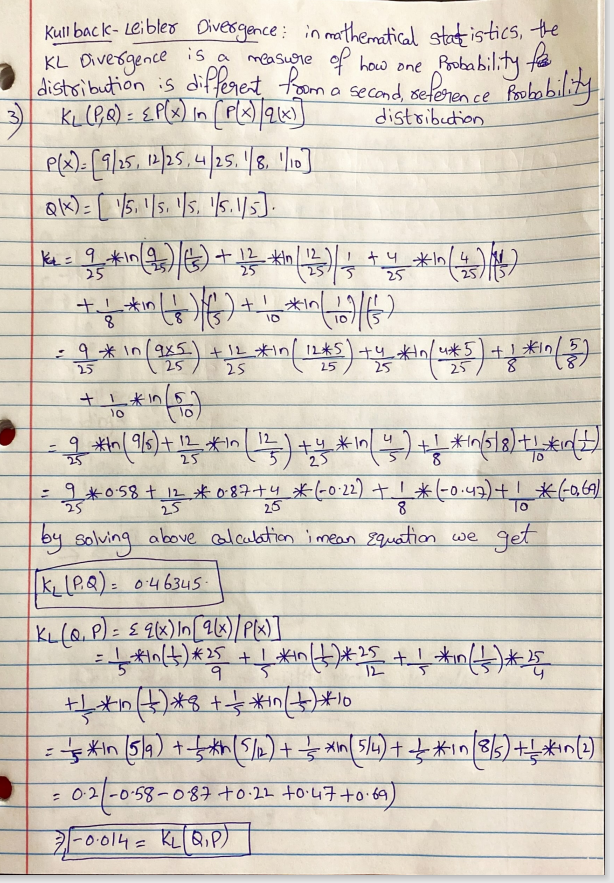 Kullback-Leibler Divergence: in mathematical statistics, the
KL Divergence is a measure of how one Probability
distribution is different from a second, reference Probability
distribution
3) KL(P,Q) = ΣP(x) ln [P(x)|q(x)]
P(x) = [9/25, 12/25, 4/25, 1/8, 1/10]
Q(x) = [1/5, 1/5, 1/5, 1/5, 1/5].
KL = 9/25 *ln(9/25)|(1/5) + 12/25 *ln(12/25)|1/5 + 4/25 *ln(4/25)|(1/5)
+ 1/8 *ln(1/8)|(1/5) + 1/10 *ln(1/10)|(1/5)
= 9/25 * ln(9×5/25) + 12/25 *ln(12*5/25) + 4/25 *ln(4*5/25) + 1/8 *ln(5/8)
+ 1/10 *ln(5/10)
= 9/25 *ln(9/5) + 12/25 *ln(12/5) + 4/25 *ln(4/5) + 1/8 *ln(5/8) + 1/10 *ln(1/2)
= 9/25 *0.58 + 12/25 * 0.87 + 4/25 *(-0.22) + 1/8 *(-0.47) + 1/10 *(-0.69)
by solving above calculation i mean Equation we get
KL(P,Q) = 0.46345.
KL(Q,P) = Σ q(x) ln[q(x)/P(x)]
= 1/5 *ln(1/5)*25/9 + 1/5 *ln(1/5)*25/12 + 1/5 *ln(1/5)*25/4
+ 1/5 *ln(1/5)*8 + 1/5 *ln(1/5)*10
= 1/5 *ln(5/9) + 1/5 *ln(5/12) + 1/5 *ln(5/4) + 1/5 *ln(8/5) + 1/5 *ln(2)
= 0.2(-0.58-0.87+0.22+0.47+0.69)
⇒ -0.014 = KL(Q,P)